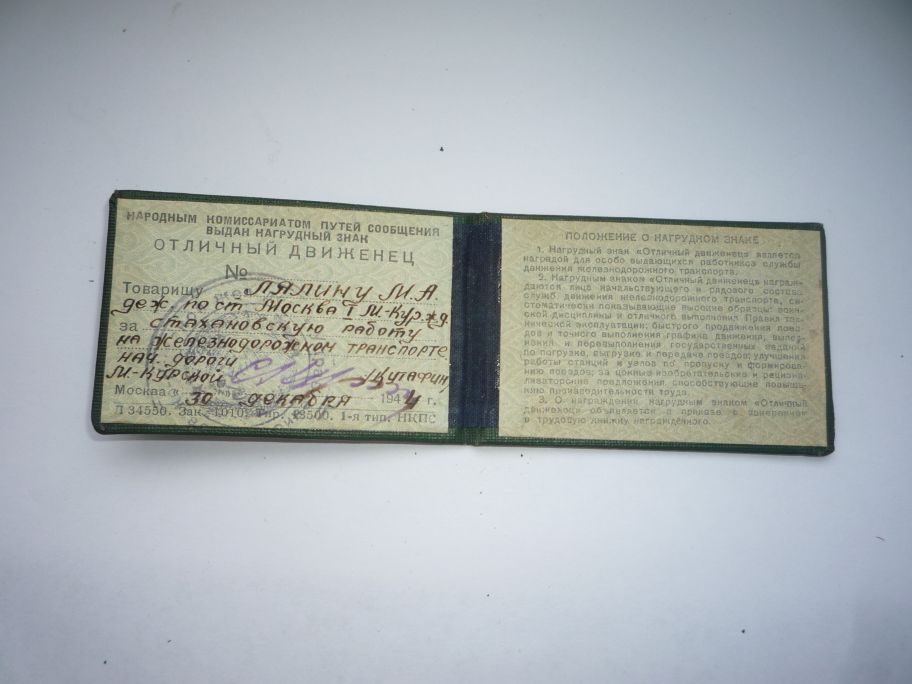 НАРОДНЫМ КОМИССАРИАТОМ ПУТЕЙ СООБЩЕНИЯ
ВЫДАН НАГРУДНЫЙ ЗНАК
ОТЛИЧНЫЙ ДВИЖЕНЕЦ
№
Товарищу Лялину М.А.
деж. по ст. Москва I М-Кур. ж.д.
за стахановскую работу
на железнодорожном транспорте
нач. дороги
М-Курской Кутафин
Москва « 30 декабря 1944 г.
Л 34550. Зак. 1010. Тир. 13500. 1-я тип. НКПС
ПОЛОЖЕНИЕ О НАГРУДНОМ ЗНАКЕ
1. Нагрудный знак «Отличный движенец» является
наградой для особо выдающихся работников службы
движения железнодорожного транспорта.
2. Нагрудным знаком «Отличный движенец» награж-
даются лица начальствующего и рядового состава
служб движения железнодорожного транспорта, си-
стематически показывающие высокие образцы воин-
ской дисциплины и отличного выполнения Правил тех-
нической эксплуатации; быстрого продвижения поез-
дов и точного выполнения графика движения, выпол-
нения и перевыполнения государственных заданий
по погрузке, выгрузке и передаче поездов; улучшения
работы станций и узлов по пропуску и формирова-
нию поездов; за ценные изобретательские и рациона-
лизаторские предложения, способствующие повыше-
нию производительности труда.
3. О награждении нагрудным знаком «Отличный
движенец» объявляется в приказе с занесением
в трудовую книжку награждённого.